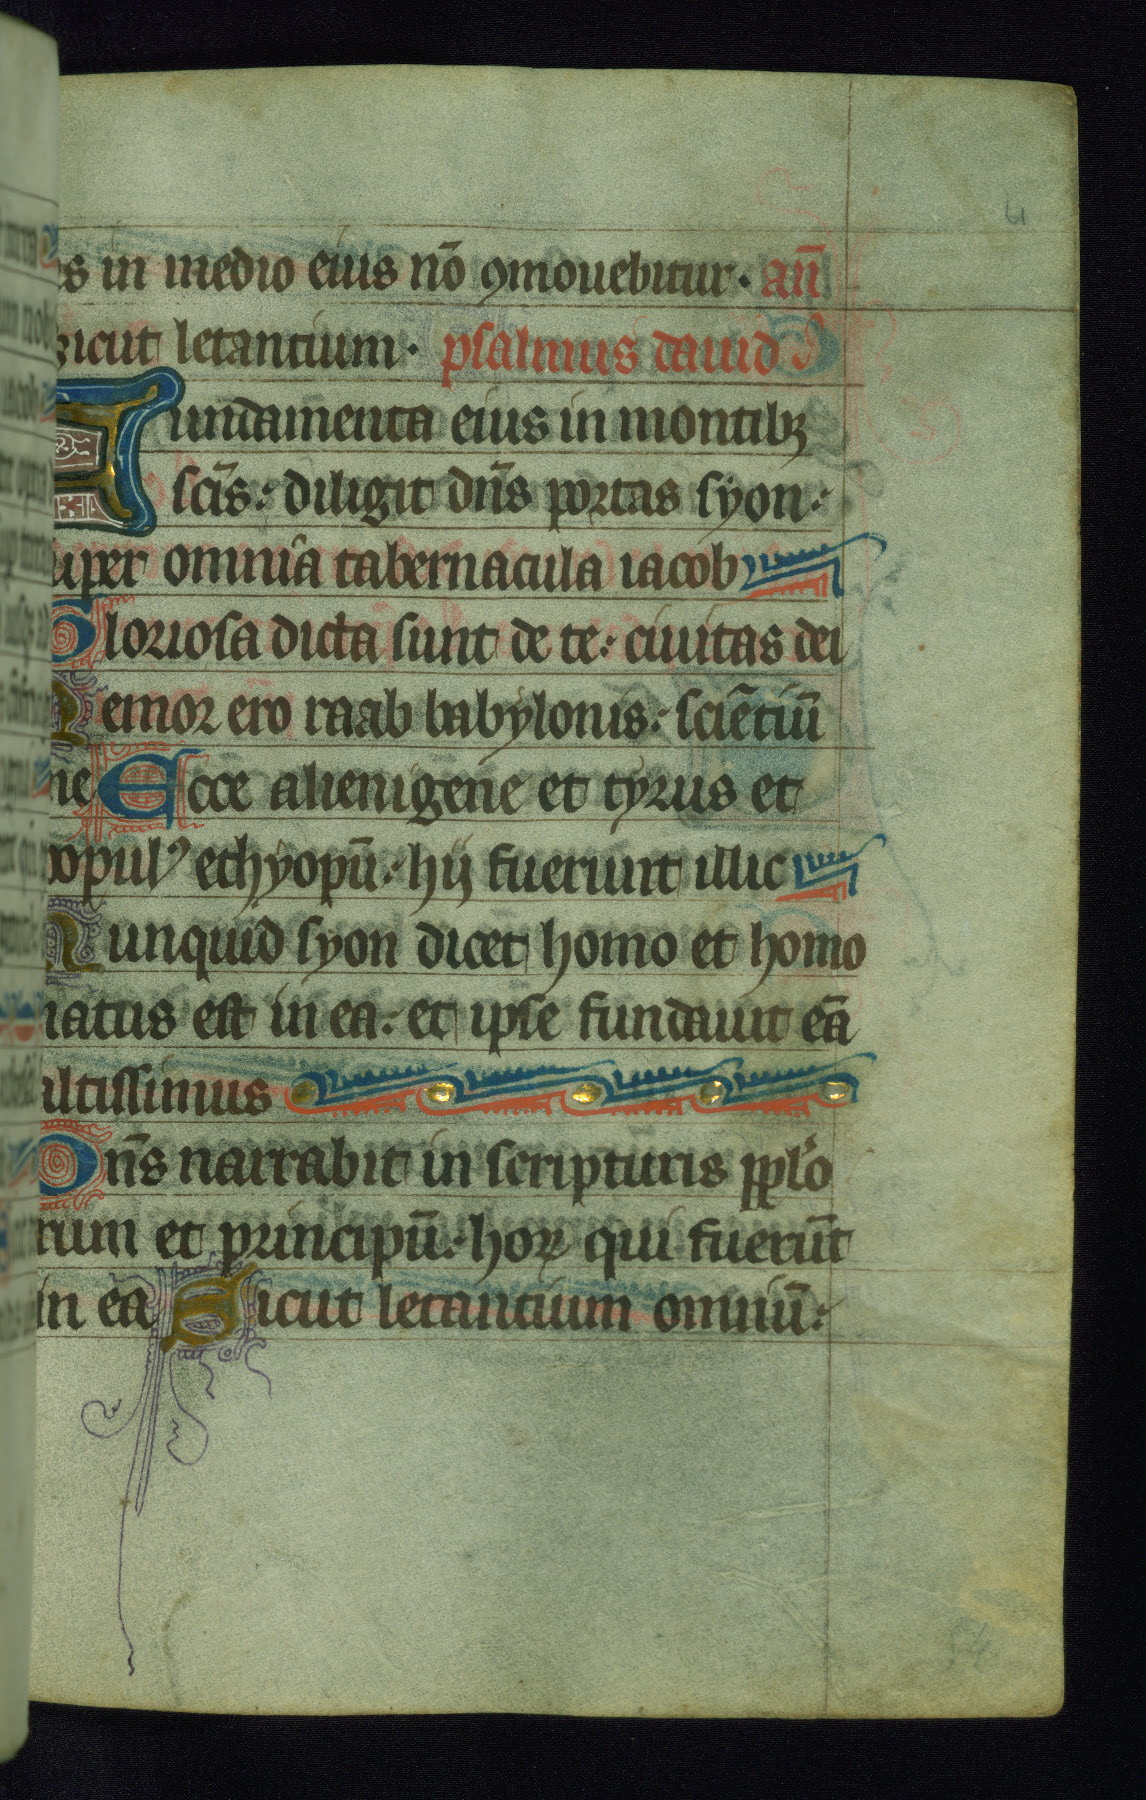 es in medio eius nō ꝯmouebitur· an̄
Sicut letantium· psalmus dauid
Fundamenta eius in montibꝫ
sc̄is: diligit dn̄s portas syon:
super omnia tabernacula iacob
Gloriosa dicta sunt de te: ciuitas dei
Memor ero raab babylonis: sciētiū
me Ecce alienigene et tyrus et
populꝰ ethyopū: hij fuerunt illic
Nunquid syon dicet homo et homo
natus est in ea: et ipse fundauit eā
altissimus
Dn̄s narrabit in scripturis ppl̄o
rum et principū: hoꝝ qui fuerūt
in ea Sicut letantium omniū: